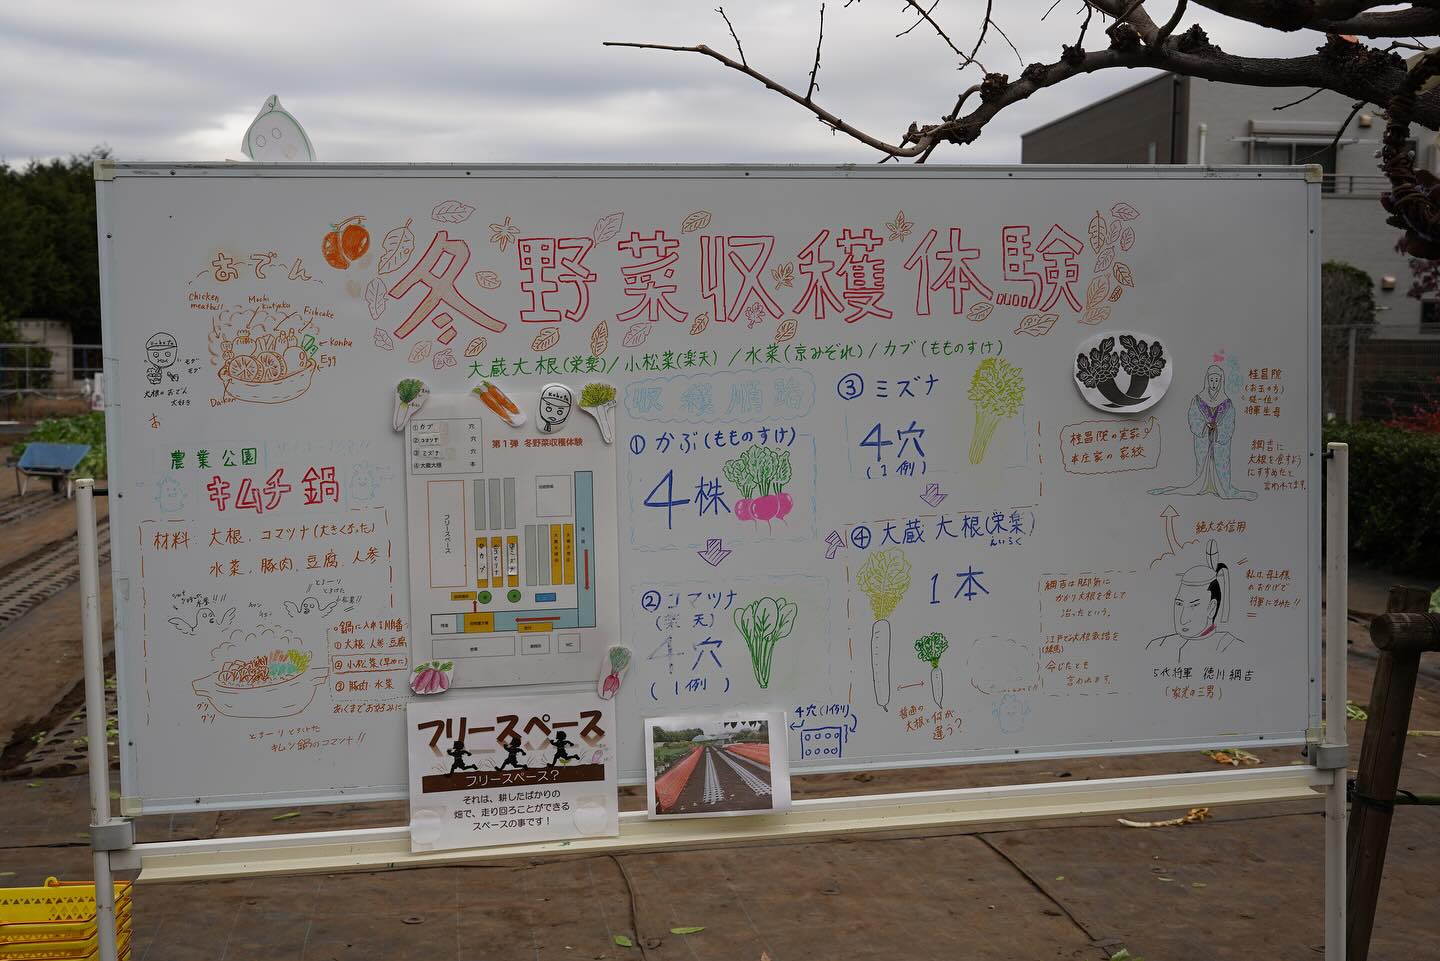 冬野菜収穫体験
大蔵大根(栄薬)/小松菜(楽天)/水菜(京みぞれ)/カブ(もものすけ)
おでん
Chicken
meatball
Mochi
kintyaku
Fishcake
Konbu
Egg
Daikon
Kobuta
モグ
モグ
大根のおでん
大好き
農業公園
キムチ鍋
材料 大根、コマツナ(大きくなった)
水菜、豚肉、豆腐、人参
鍋に入れる順番
①大根・人参・豆腐
②小松菜(早めに)
③豚肉 水菜
あくまでお好みに
グツ
グツ
とまーりとろけた
キムチ鍋のコマツナ!!
①カブ 穴
②コマツナ 穴
③ミズナ 穴
④大蔵大根 本
第1弾 冬野菜収穫体験
Kobuta
フリースペース
カブ
コマツナ
ミズナ
大蔵大根
大蔵大根
WC
フリースペース
フリースペース?
それは、耕したばかりの
畑で、走り回ることができる
スペースの事です!
収穫順路
①かぶ(もものすけ)
4株
②コマツナ
(楽天)
4穴
(1例)
③ミズナ
4穴
(1例)
④大蔵大根(栄薬)
えいろく
1本
普通の
大根と何が
違う?
4穴(1例)
桂昌院の実家
本庄家の家紋
桂昌院
(お玉の方)
従一位
将軍生母
綱吉に
大根を食すよう
にすすめたと
言われてます。
絶大な信用
私は、母上様
のおかげで
将軍になれた!!
綱吉は脚気に
かかり大根を食して
治ったという。
江戸で大根栽培を
(練馬)
命じたとも
言われます。
5代将軍 徳川綱吉
(家光の三男)